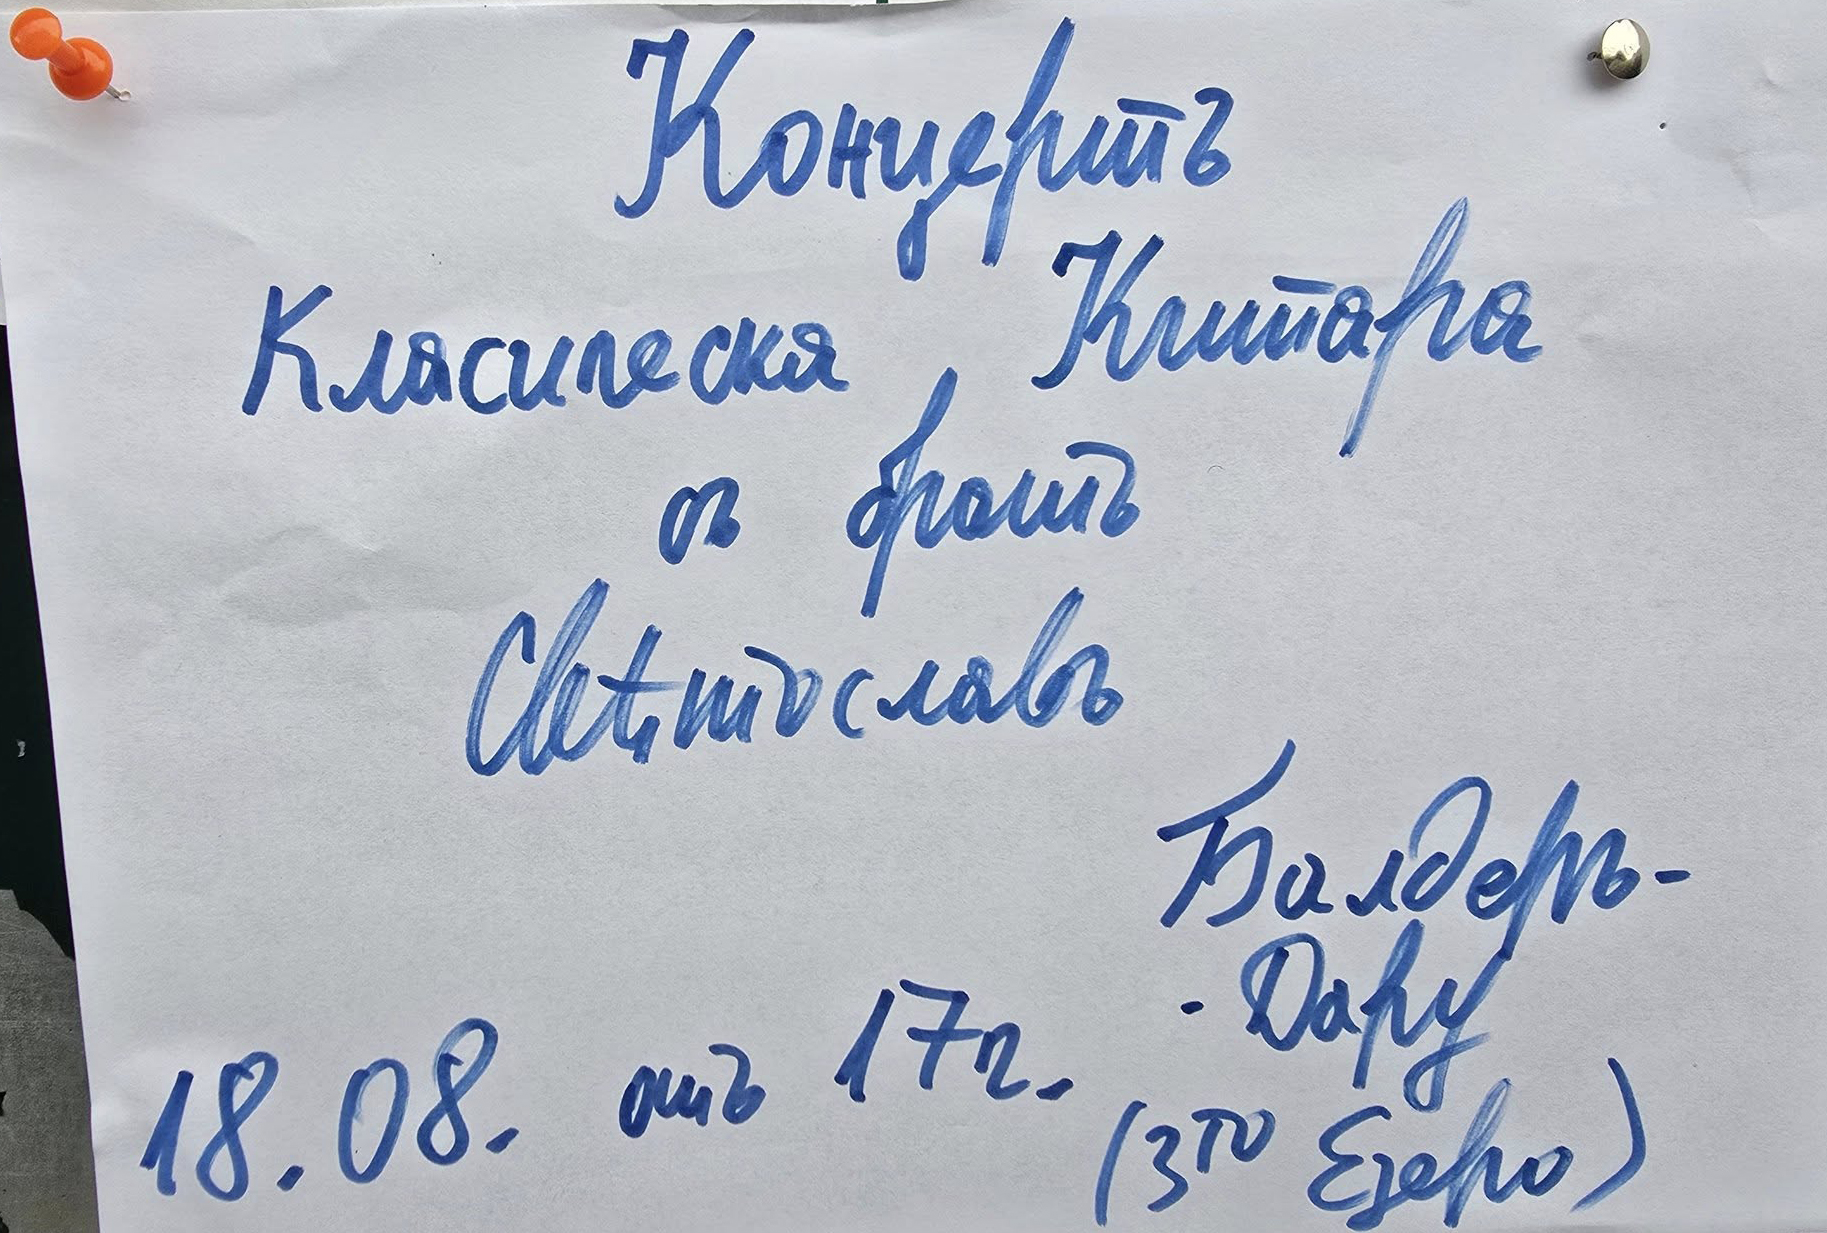 Концертъ
Класическа Китара
съ братъ
Свѣтославъ
Балдеръ-
-Дару
18.08. отъ 17ч.
(3то Езеро)